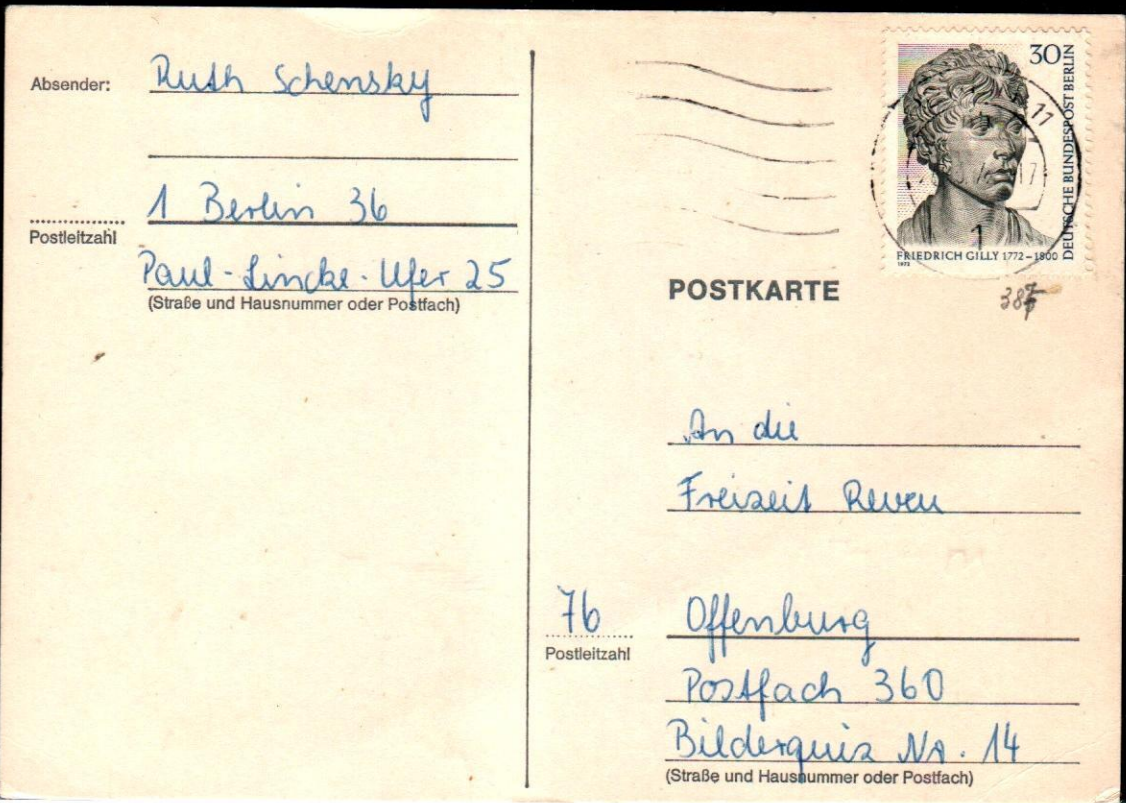 Absender: Ruth Schensky
1 Berlin 36
Postleitzahl
Paul-Lincke-Ufer 25
(Straße und Hausnummer oder Postfach)
30
DEUTSCHE BUNDESPOST BERLIN
11
17
1
FRIEDRICH GILLY 1772–1800
1972
POSTKARTE
An die
Freizeit Reven
76 Offenburg
Postleitzahl
Postfach 360
Bilderquiz Nr. 14
(Straße und Hausnummer oder Postfach)